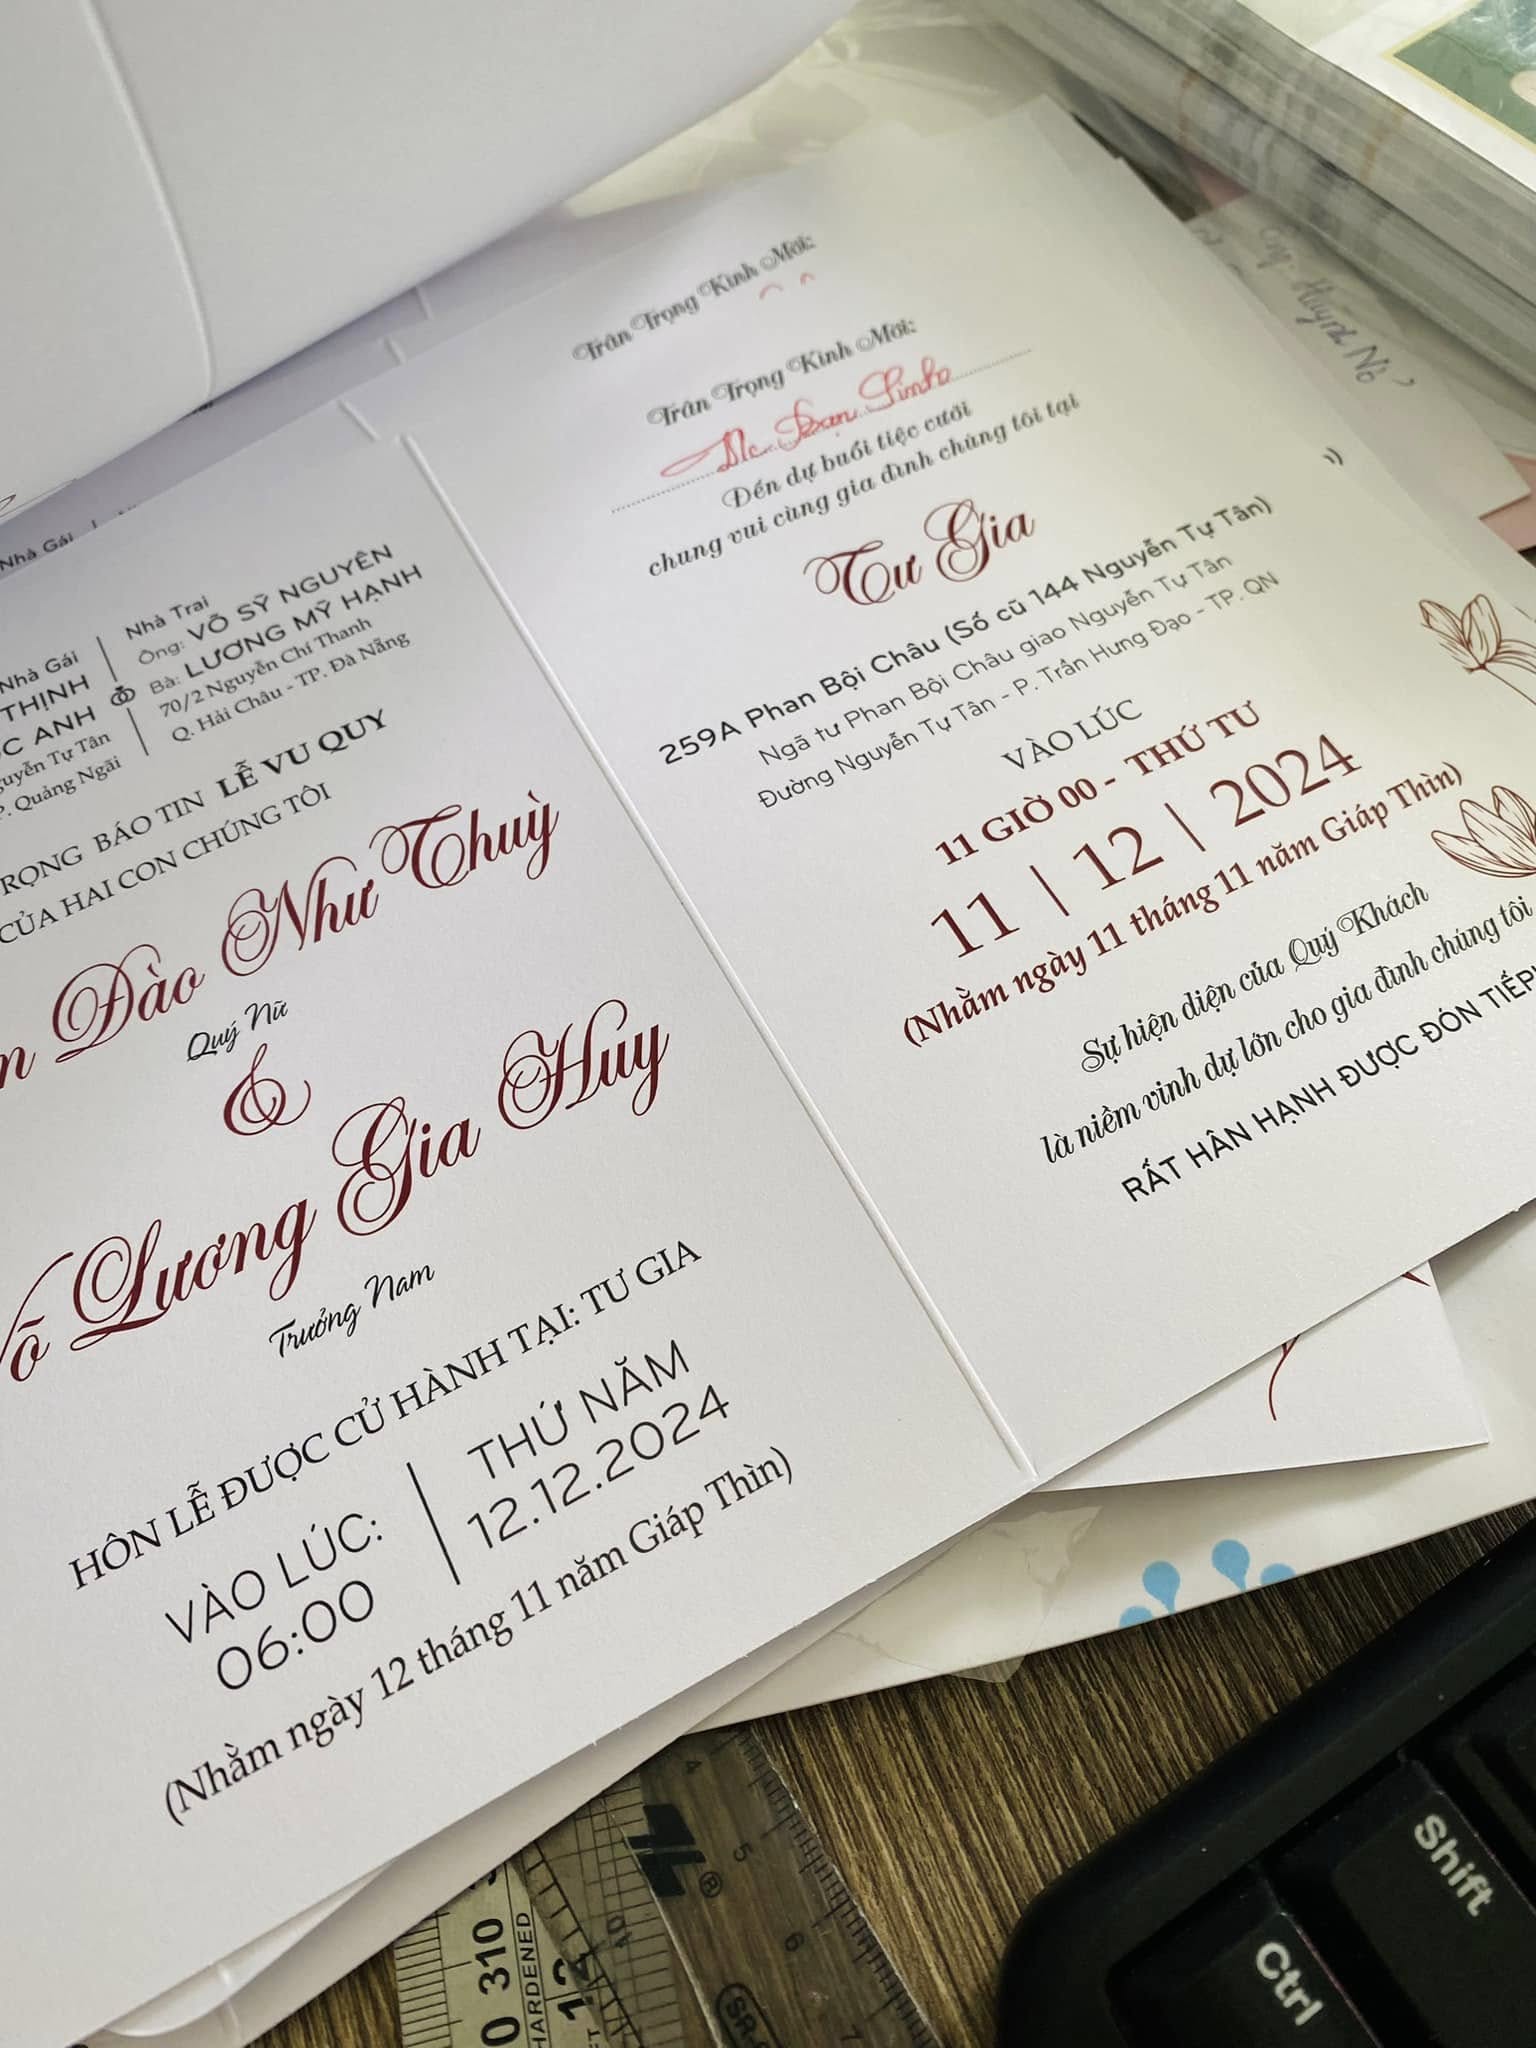 Nhà Gái
Nhà Gái
THỊNH
ỌC ANH
guyễn Tự Tân
P. Quảng Ngãi
Nhà Trai
Ông: VÕ SỸ NGUYÊN
Bà: LƯƠNG MỸ HẠNH
70/2 Nguyễn Chí Thanh
Q. Hải Châu - TP. Đà Nẵng
RỌNG BÁO TIN LỄ VU QUY
CỦA HAI CON CHÚNG TÔI
Đào Như Thuỳ
Quý Nữ
&
Võ Lương Gia Huy
Trưởng Nam
HÔN LỄ ĐƯỢC CỬ HÀNH TẠI: TƯ GIA
VÀO LÚC:
06:00
THỨ NĂM
12.12.2024
(Nhằm ngày 12 tháng 11 năm Giáp Thìn)
Trân Trọng Kính Mời:
Trân Trọng Kính Mời:
Linh
Đến dự buổi tiệc cưới
chung vui cùng gia đình chúng tôi tại
Tư Gia
259A Phan Bội Châu (Số cũ 144 Nguyễn Tự Tân)
Ngã tư Phan Bội Châu giao Nguyễn Tự Tân
Đường Nguyễn Tự Tân - P. Trần Hưng Đạo - TP. QN
VÀO LÚC
11 GIỜ 00 - THỨ TƯ
11 | 12 | 2024
(Nhằm ngày 11 tháng 11 năm Giáp Thìn)
Sự hiện diện của Quý Khách
là niềm vinh dự lớn cho gia đình chúng tôi
RẤT HÂN HẠNH ĐƯỢC ĐÓN TIẾP!
Huỳnh
0 310
HARDENED
12
4
5
6
7
®
Shift
Ctrl